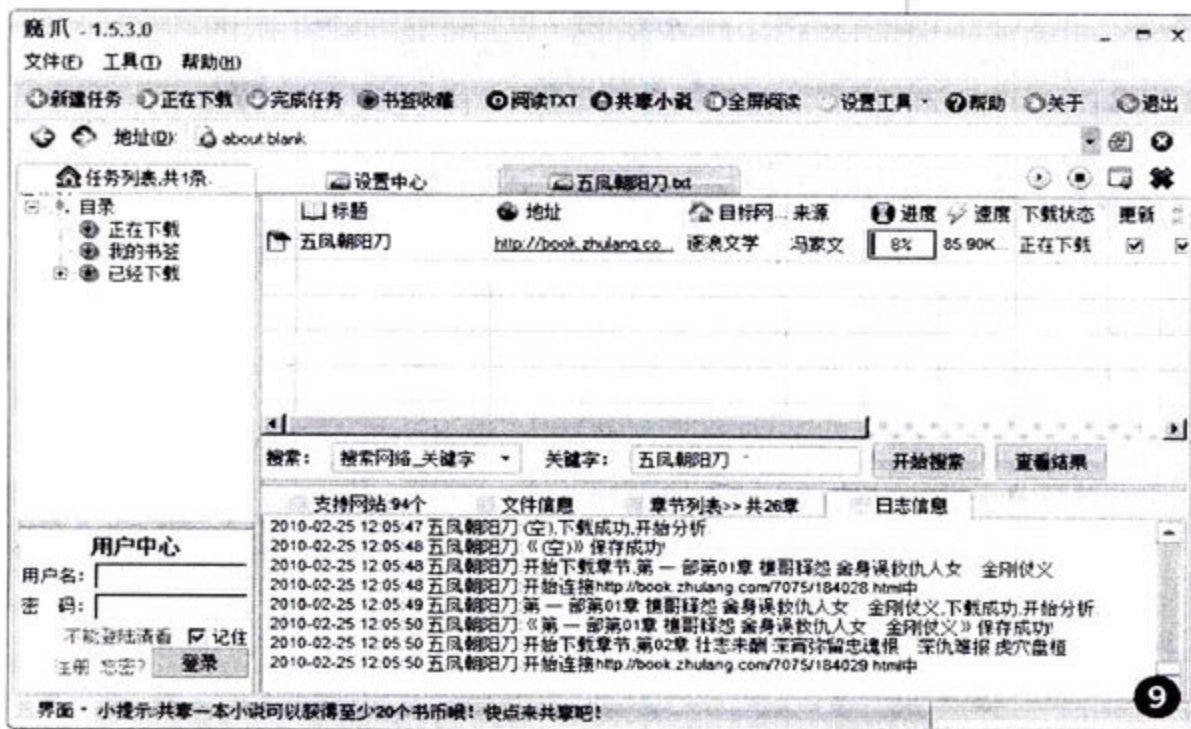 魔爪 - 1.5.3.0
文件(F) 工具(T) 帮助(H)
新建任务 正在下载 完成任务 书签收藏 阅读TXT 共享小说 全屏阅读 设置工具 帮助 关于 退出
地址(D): about:blank
任务列表,共1条. 设置中心 五凤朝阳刀.txt
目录
正在下载
我的书签
已经下载
标题 地址 目标网... 来源 进度 速度 下载状态 更新
五凤朝阳刀 http://book.zhulang.co... 逐浪文学 冯家文 8% 85.90K... 正在下载
搜索: 搜索网络_关键字 关键字: 五凤朝阳刀 开始搜索 查看结果
支持网站:94个 文件信息 章节列表>> 共26章 日志信息
2010-02-25 12:05:47 五凤朝阳刀:(空),下载成功,开始分析.
2010-02-25 12:05:48 五凤朝阳刀:《(空)》保存成功!
2010-02-25 12:05:48 五凤朝阳刀:开始下载章节,第一部第01章 释怨 舍身误救仇人女 金刚仗义
2010-02-25 12:05:48 五凤朝阳刀:开始连接http://book.zhulang.com/7075/184028.html中
2010-02-25 12:05:49 五凤朝阳刀:第一部第01章 释怨 舍身误救仇人女 金刚仗义,下载成功,开始分析.
2010-02-25 12:05:50 五凤朝阳刀:《第一部第01章 释怨 舍身误救仇人女 金刚仗义》保存成功!
2010-02-25 12:05:50 五凤朝阳刀:开始下载章节,第02章 壮志未酬 弥留忠魂恨 深仇难报 虎穴盘桓
2010-02-25 12:05:50 五凤朝阳刀:开始连接http://book.zhulang.com/7075/184029.html中
用户中心
用户名:
密 码:
不能登陆请看 记住
注册 忘密? 登录
界面 小提示:共享一本小说可以获得至少20个书币哦! 快点来共享吧!
9